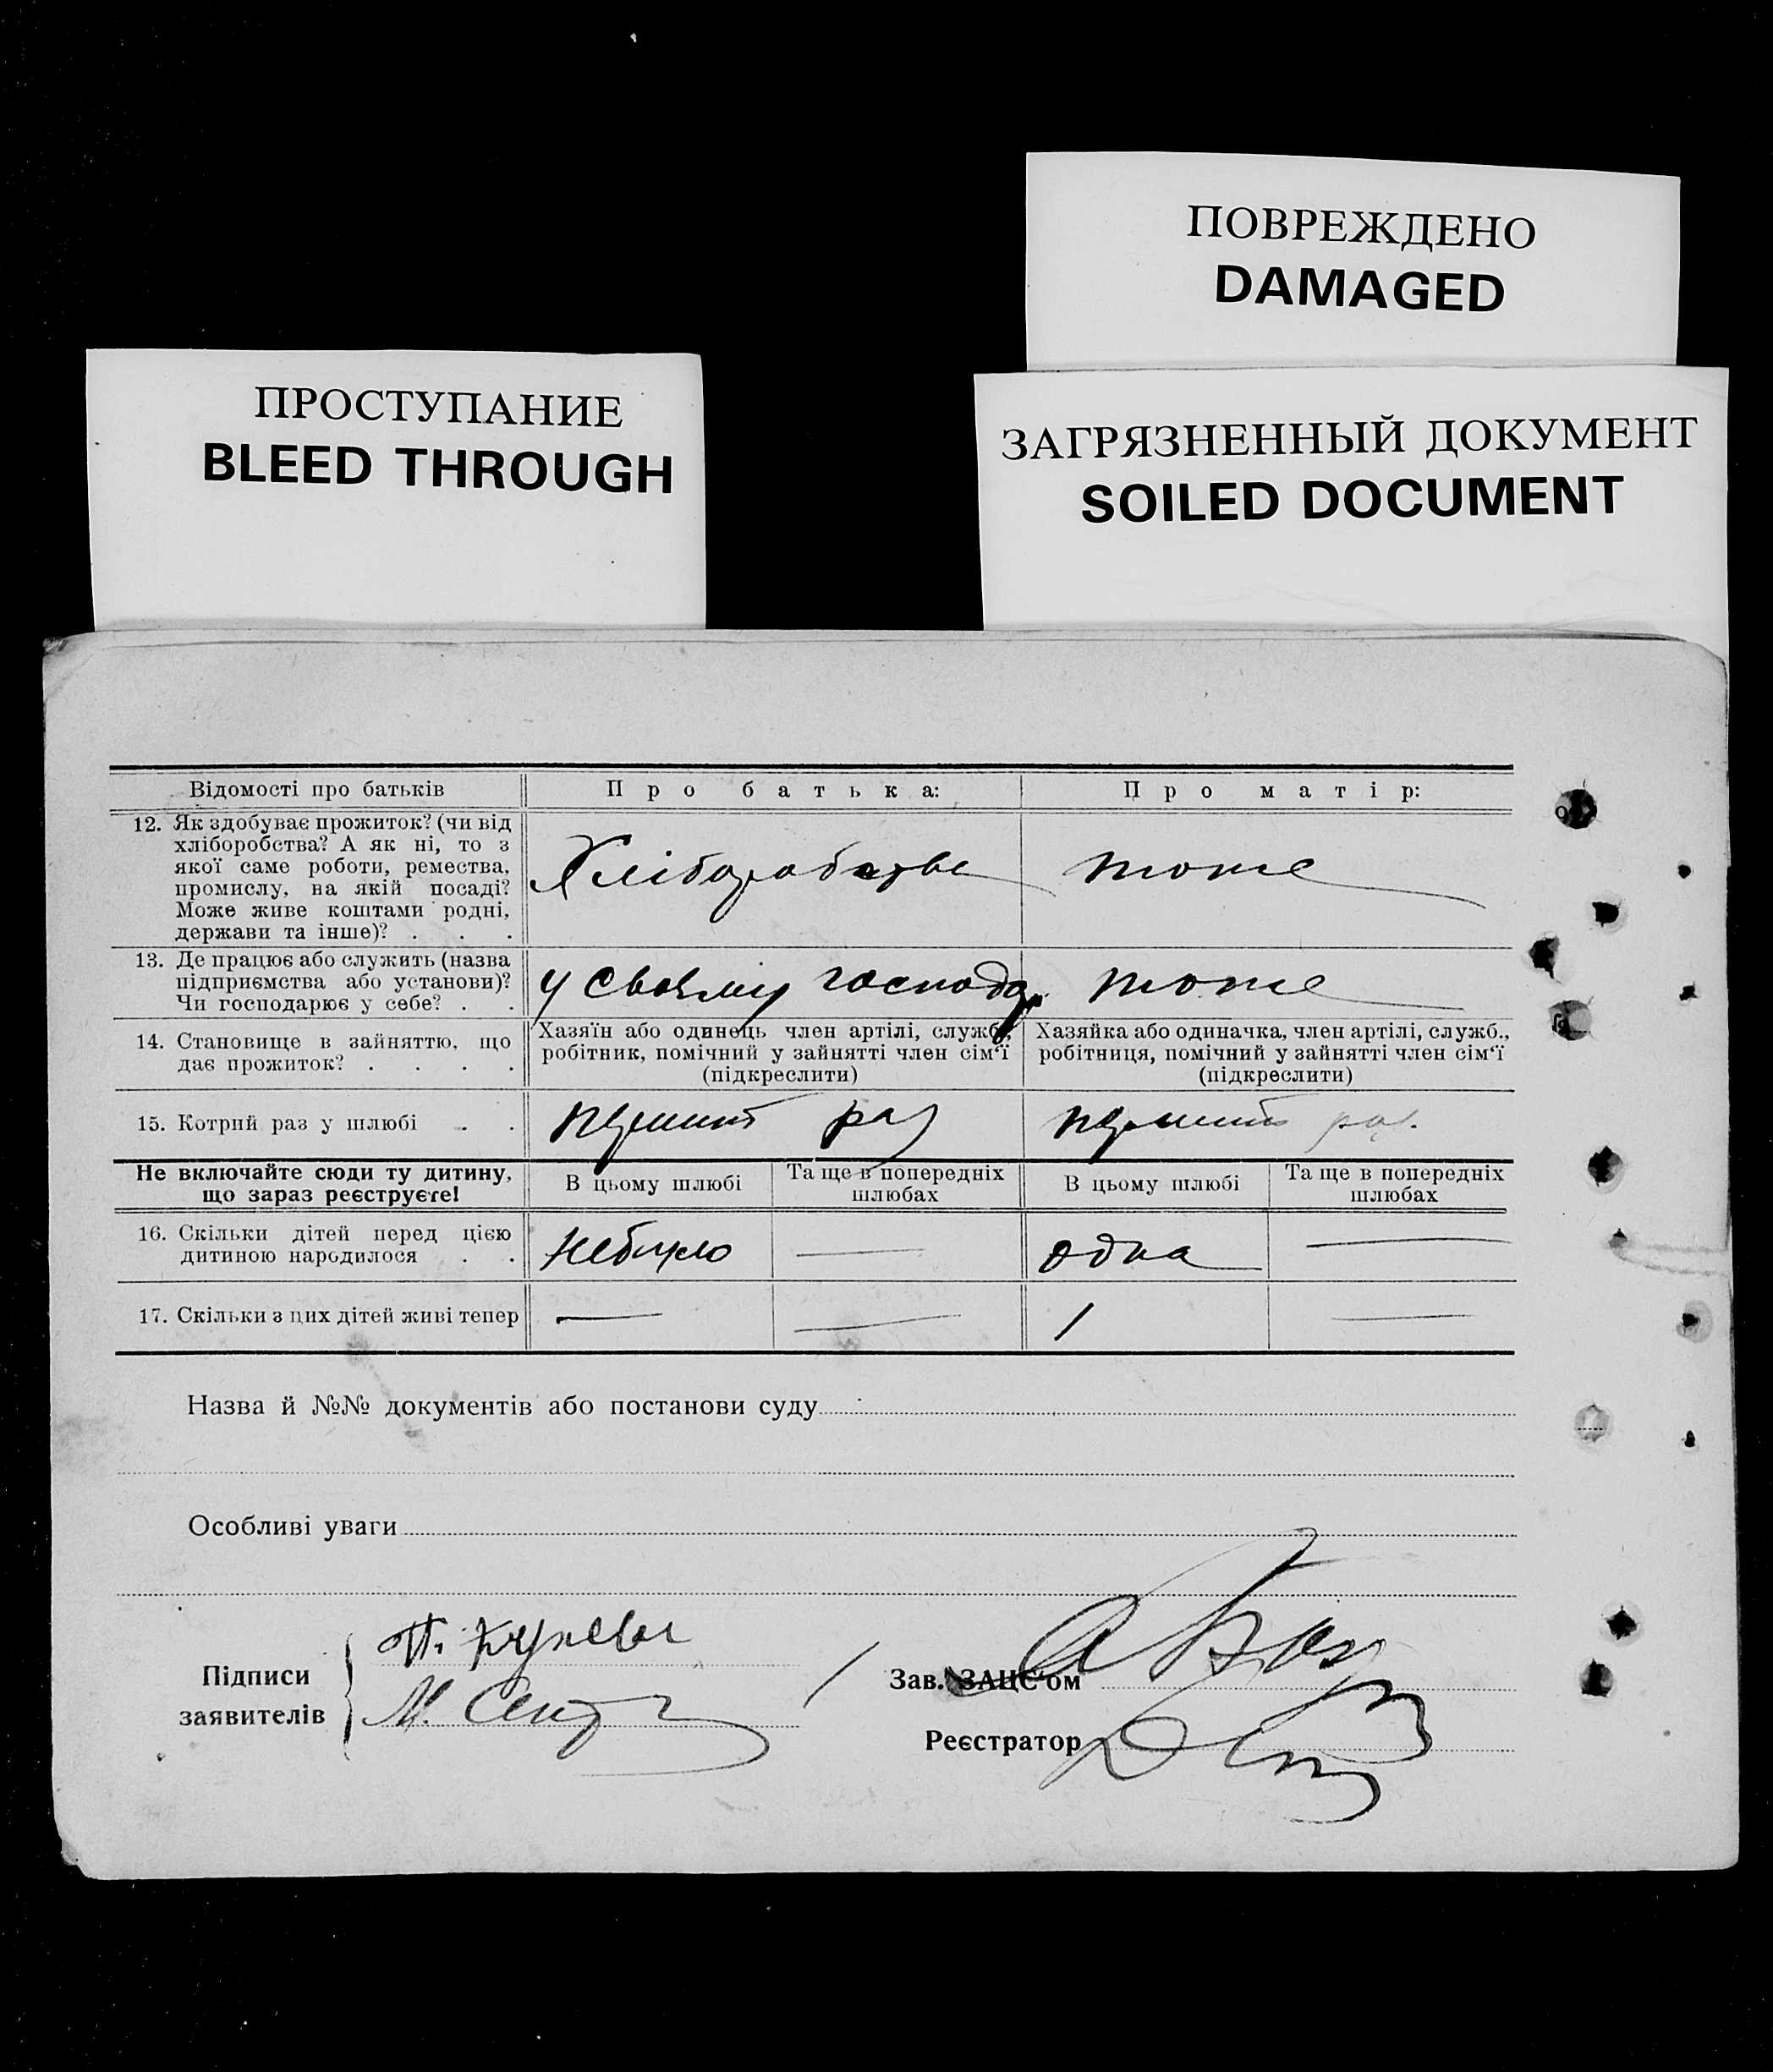 ПОВРЕЖДЕНО
DAMAGED
ПРОСТУПАНИЕ
BLEED THROUGH
ЗАГРЯЗНЕННЫЙ ДОКУМЕНТ
SOILED DOCUMENT
Відомості про батьків
Про батька:
Про матір:
12. Як здобуває прожиток? (чи від
хліборобства? А як ні, то з
якої саме роботи, ремества,
промислу, на якій посаді?
Може живе коштами родні,
держави та інше)? . . .
Хліборобство
тоже
13. Де працює або служить (назва
підприємства або установи)?
Чи господарює у себе? . .
у своєму господар.
тоже
14. Становище в зайняттю, що
дає прожиток? . . . .
Хазяїн або одинець член артілі, служб.,
робітник, помічний у зайнятті член сім'ї
(підкреслити)
Хазяйка або одиначка, член артілі, служб.,
робітниця, помічний у зайнятті член сім'ї
(підкреслити)
15. Котрий раз у шлюбі . .
раз
раз.
Не включайте сюди ту дитину,
що зараз реєструєте!
В цьому шлюбі
Та ще в попередніх
шлюбах
В цьому шлюбі
Та ще в попередніх
шлюбах
16. Скільки дітей перед цією
дитиною народилося . .
небуло
—
одна
—
17. Скільки з цих дітей живі тепер
—
—
1
—
Назва й №№ документів або постанови суду
Особливі уваги
Підписи
заявителів
Зав. ЗАЦС'ом
Реєстратор